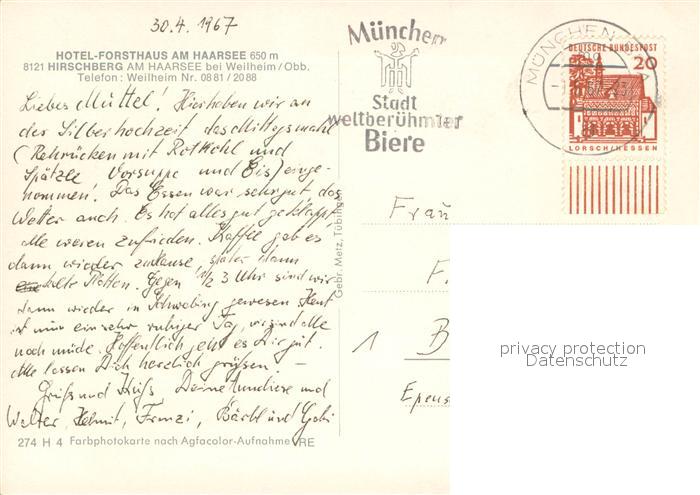 30.4.1967
HOTEL-FORSTHAUS AM HAARSEE 650 m
8121 HIRSCHBERG AM HAARSEE bei Weilheim/Obb.
Telefon: Weilheim Nr. 0881/2088
Liebes Muttel! Hierhaben wir an
der Silberhochzeit das Mittagsmahl
(Rehrücken mit Rotkohl und
Spätzle Vorsuppe und Eis) einge-
nommen! Das Essen war sehr gut das
Wetter auch. Es hat alles gut geklappt
alle waren zufrieden. Kaffee gab es
dann wieder zuhause, später dann
kalte Platten. Gegen 1/2 3 Uhr sind wir
dann wieder in Schwabing gewesen Heut
ist nur ein sehr ruhiger Tag, wir sind alle
noch müde. Hoffentlich geht es Dir gut.
Alle lassen Dich herzlich grüßen. –
Gruß und Küß Deine Anneliese und
Walter, Helmut, Franzi, Bärbl und Gabi
274 H 4 Farbphotokarte nach Agfacolor-Aufnahme RE
Gebr. Metz, Tübingen
München
Stadt
weltberühmter
Biere
MÜNCHEN
DEUTSCHE BUNDESPOST
20
LORSCH/HESSEN
Frau
F.
1 B
Epeus
privacy protection
Datenschutz